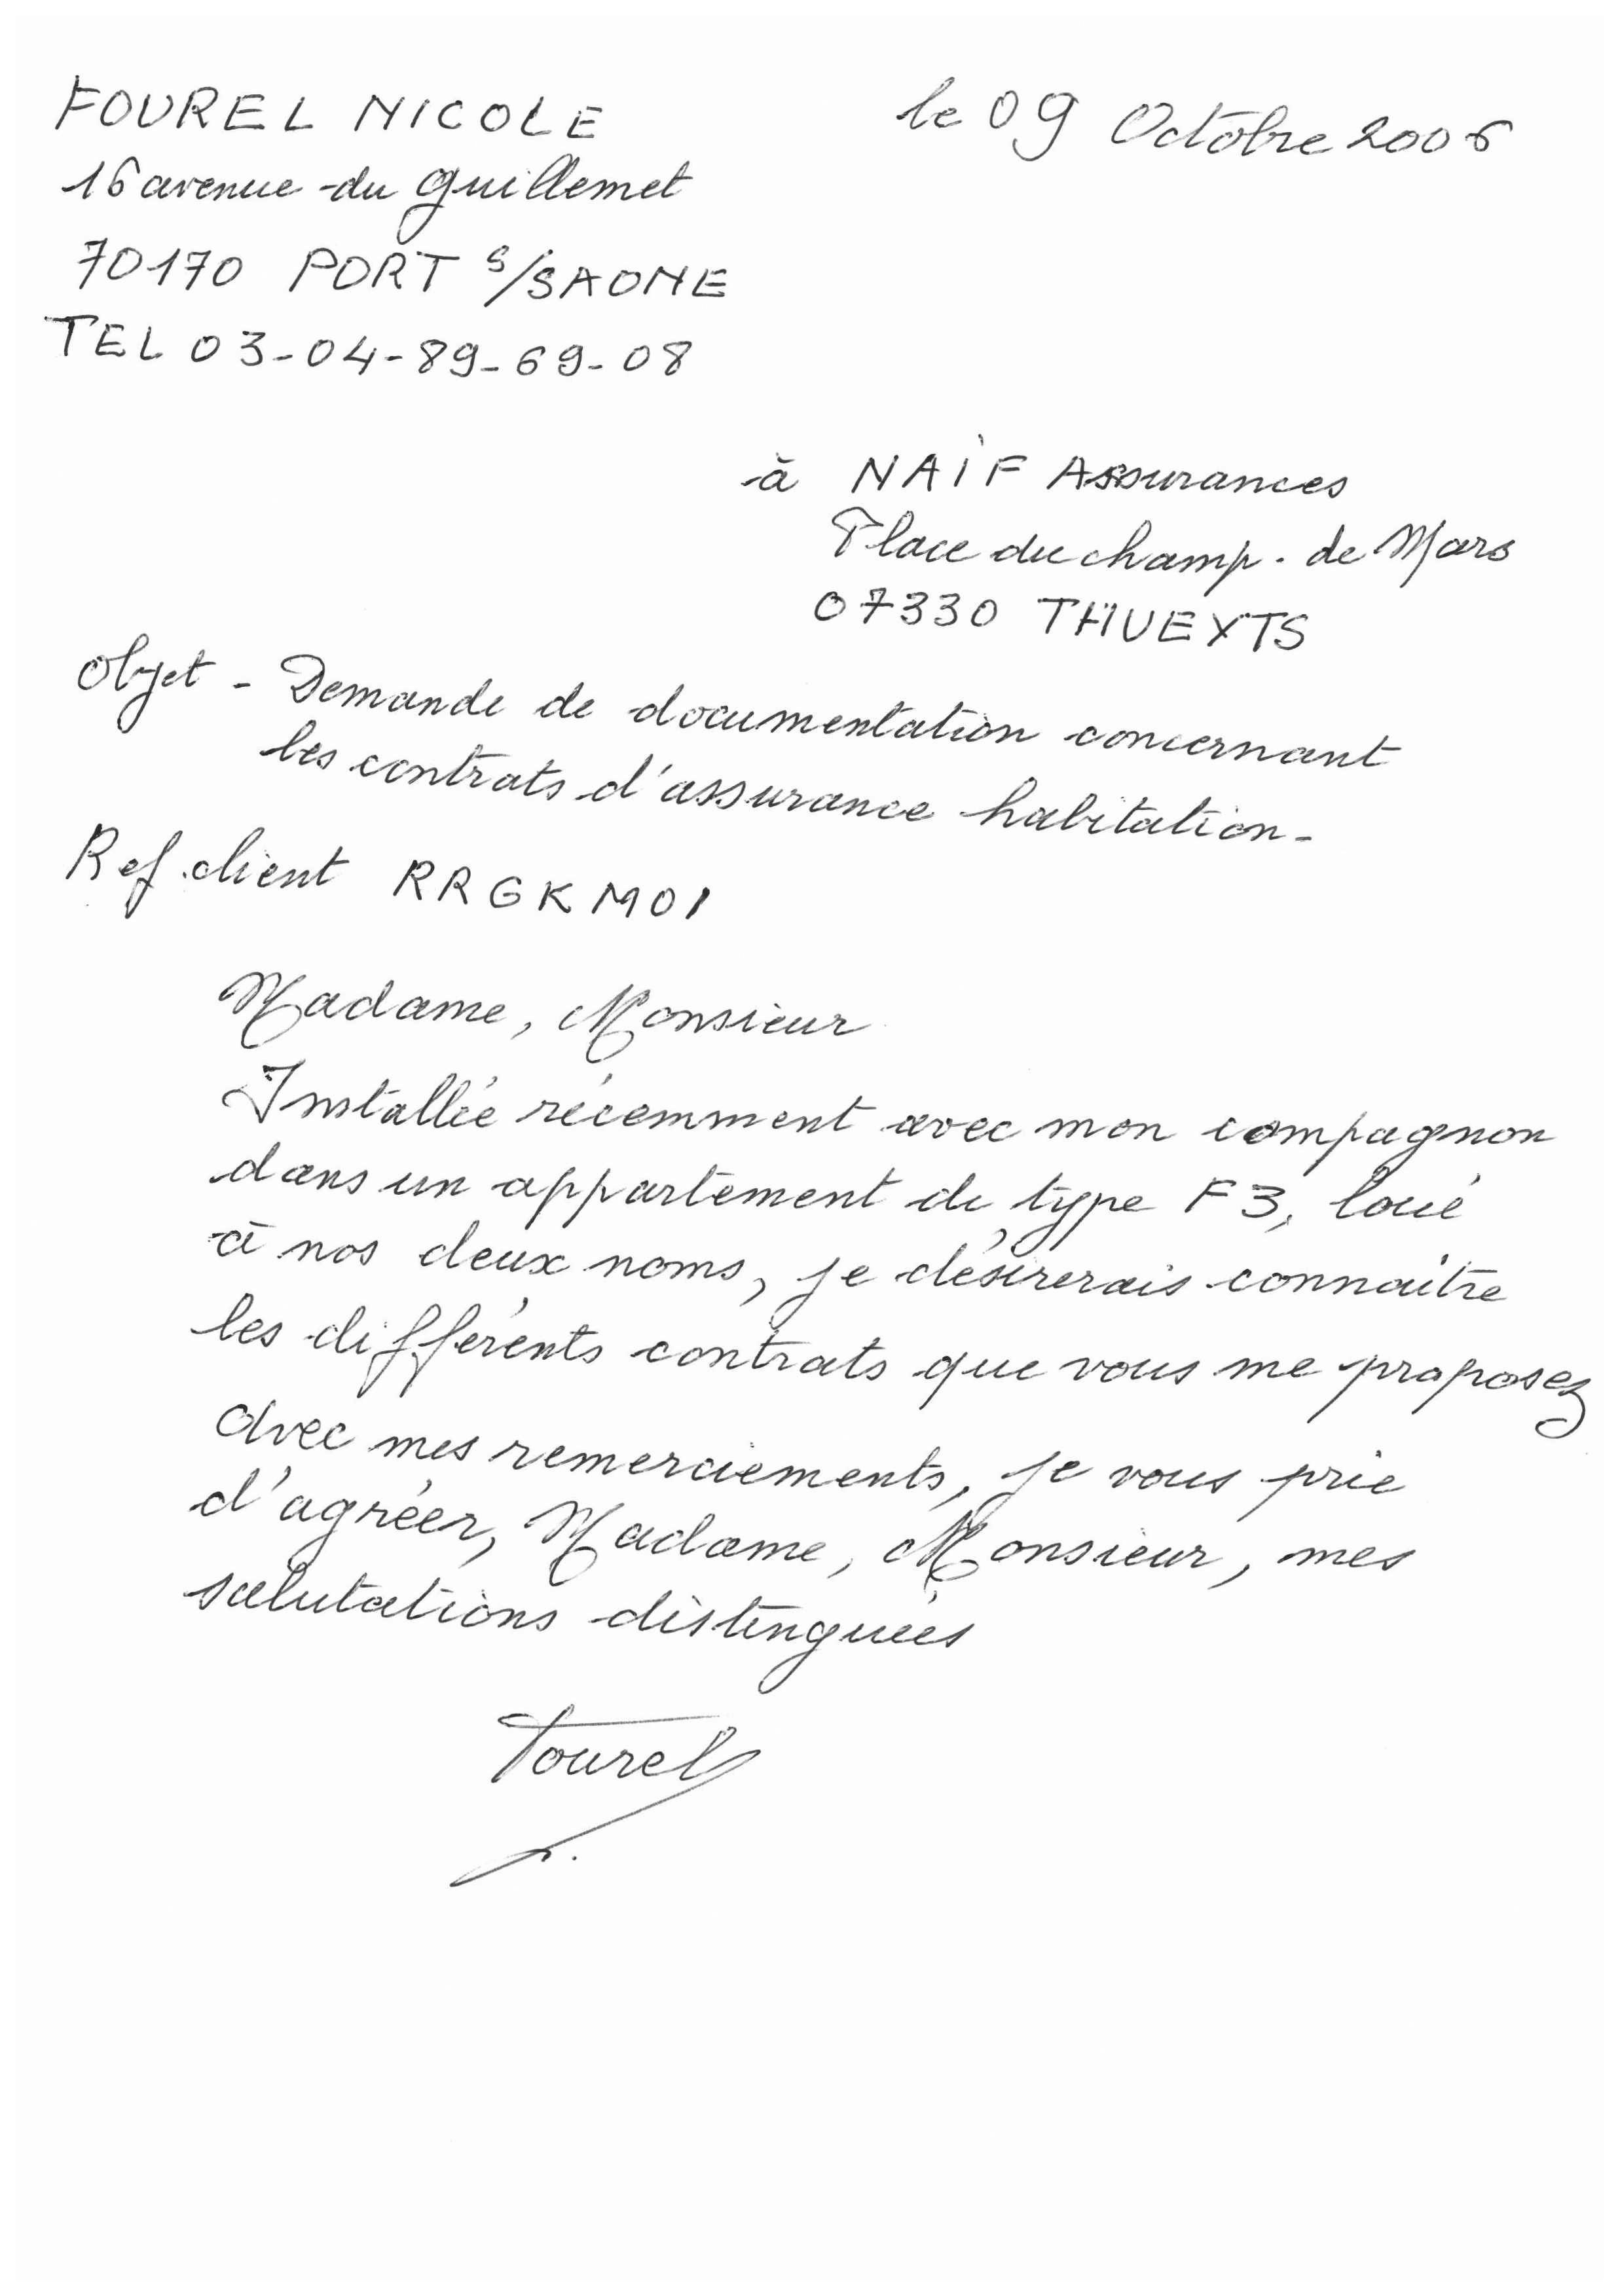 FOUREL NICOLE
le 09 Octobre 2006
16 avenue du Guillemet
70170 PORT S/SAONE
TEL 03-04-89-69-08
à NAÏF Assurances
Place du champ. de Mars
07330 THUEYTS
Objet - Demande de documentation concernant
les contrats d'assurance habitation-
Ref. client RRGKM01
Madame, Monsieur
Installée récemment avec mon compagnon
dans un appartement de type F3, loué
à nos deux noms, je désirerais connaitre
les différents contrats que vous me proposez
Avec mes remerciements, je vous prie
d'agréer, Madame, Monsieur, mes
salutations distinguées
Fourel